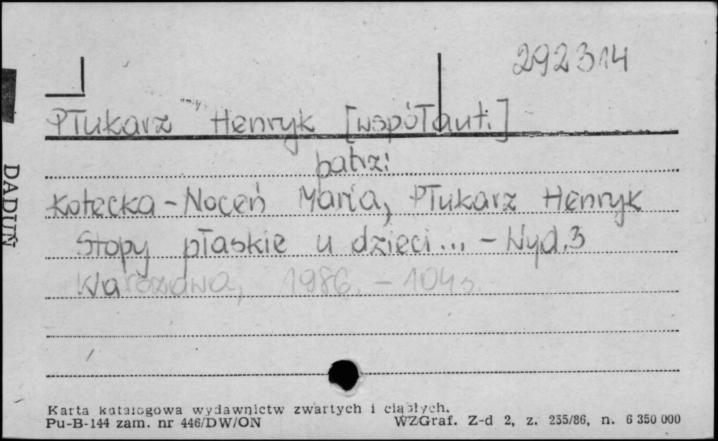 292314
Płukarz Henryk [współaut.]
patrz:
Kotecka-Noceń Maria, Płukarz Henryk
Stopy płaskie u dzieci... - Wyd.3
Warszawa, 1986. - 104 s.
DADUŃ
Karta katalogowa wydawnictw zwartych i ciągłych.
Pu-B-144 zam. nr 446/DW/ON WZGraf. Z-d 2, z. 255/86, n. 6 350 000